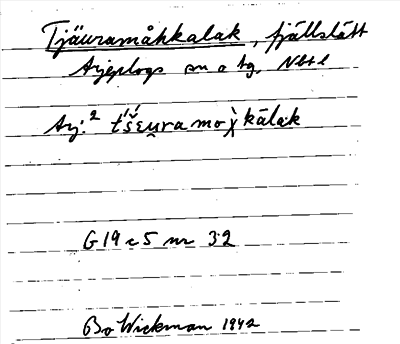 Tjäuramåhkkalak, fjällslätt
Arjeplogs sn o tg, Nbtl
Arj.² t́š́eu̯ramoχ̀kālak
G 19 c 5 nr 32
Bo Wickman 1942